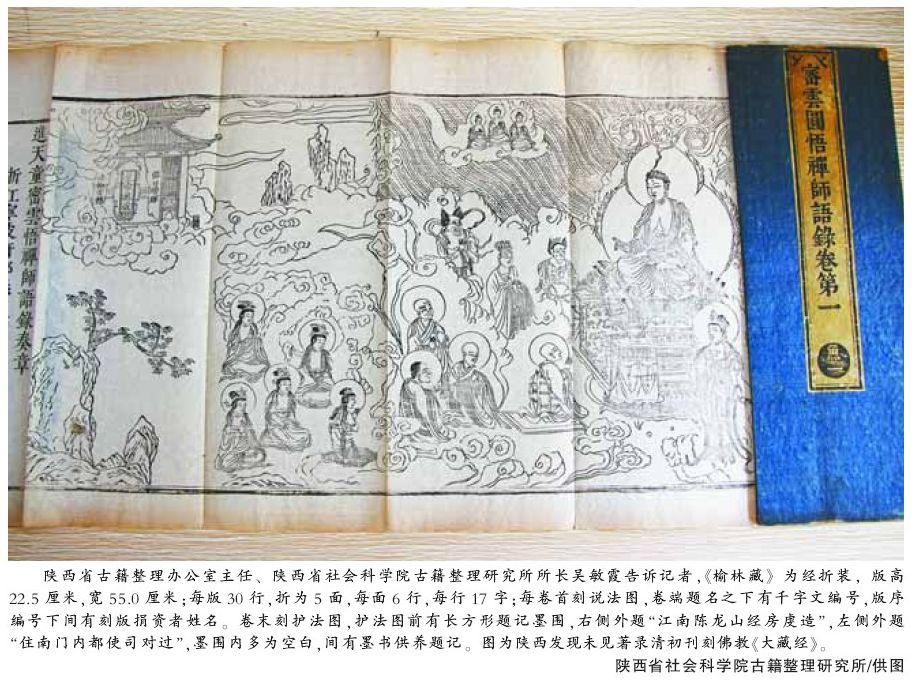 密雲圓悟禪師語錄卷第一
進天童密雲悟禪師語錄奏章
浙江寧波府
陕西省古籍整理办公室主任、陕西省社会科学院古籍整理研究所所长吴敏霞告诉记者,《榆林藏》为经折装，版高
22.5 厘米,宽 55.0 厘米;每版 30 行,折为 5 面,每面 6 行,每行 17 字;每卷首刻说法图,卷端题名之下有千字文编号,版序
编号下间有刻版捐资者姓名。卷末刻护法图,护法图前有长方形题记墨围,右侧外题“江南陈龙山经房虔造”,左侧外题
“住南门内都使司对过”,墨围内多为空白,间有墨书供养题记。图为陕西发现未见著录清初刊刻佛教《大藏经》。
陕西省社会科学院古籍整理研究所/供图